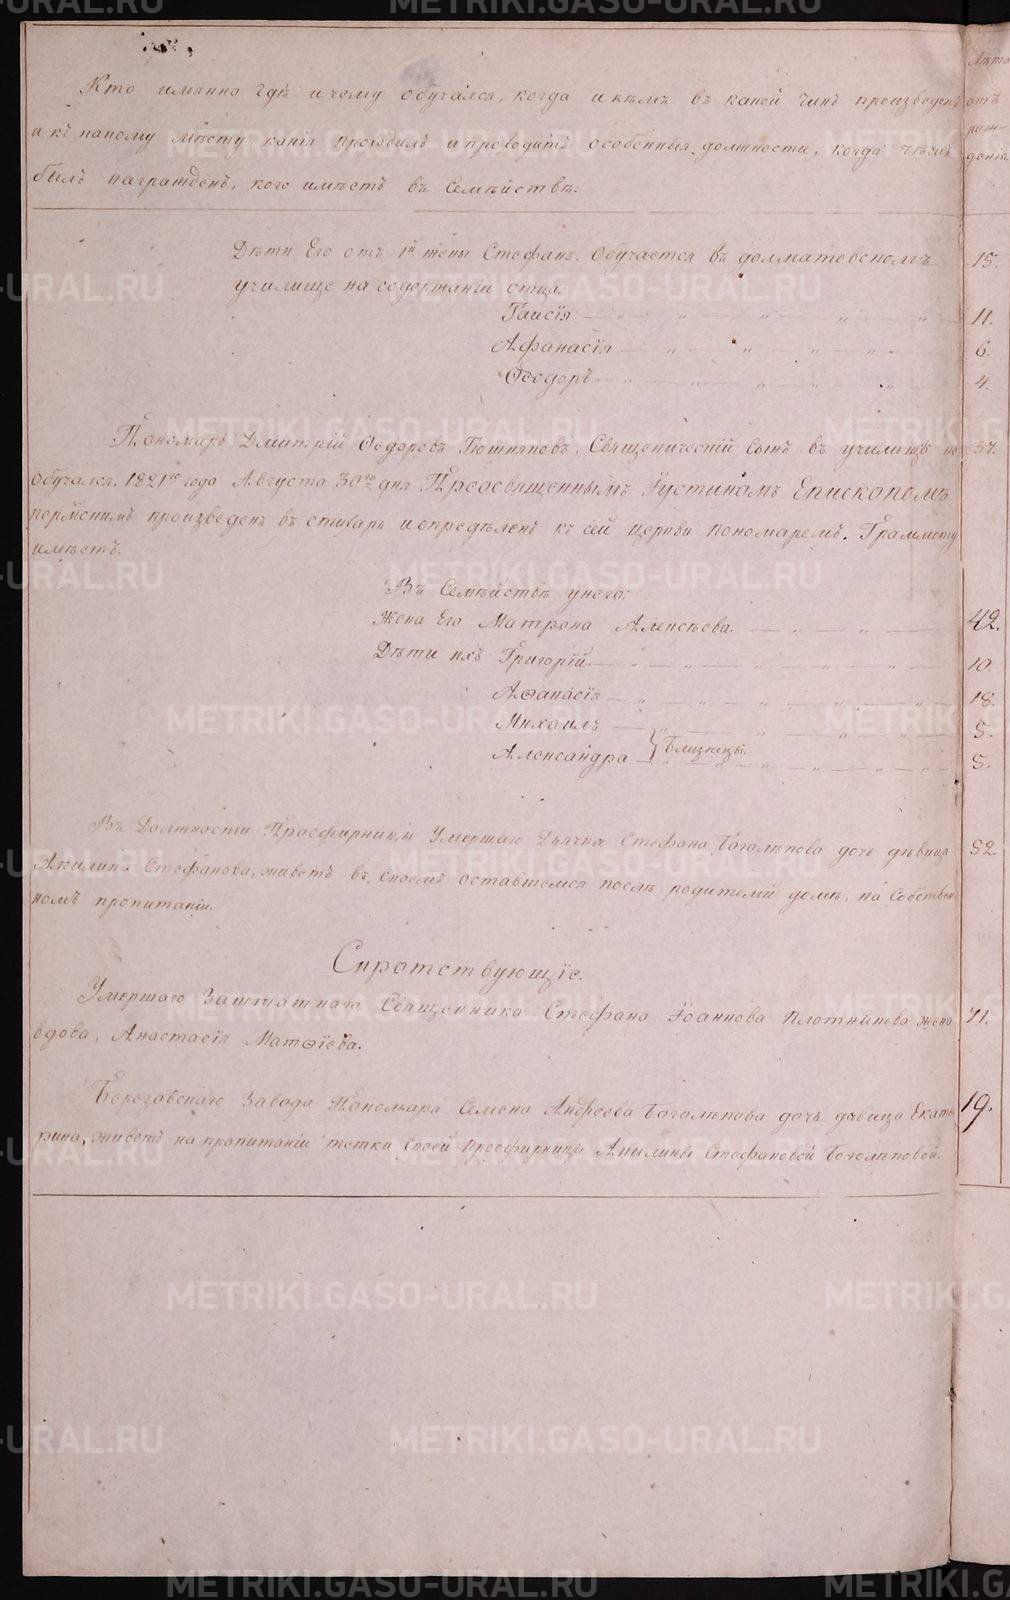 Кто имянно гдѣ и чему обучался, когда и кѣмъ въ какой чинъ произведенъ
и къ какому мѣсту какія проходилъ и проходитъ особенныя должности, когда чѣмъ
былъ награжденъ, кого имѣетъ въ Семѣйствѣ.
Лѣта
отъ
рож-
денія
Дѣти Его отъ 1й жены Стефанъ. Обучается въ долматовскомъ 15.
училище на содержаніи отца.
Таисія 11.
Афанасія 6.
Ѳеодоръ 4.
Пономарь Дмитрій Ѳедоровъ Священическій Сынъ въ училищѣ не 37.
обучался. 1821го года Августа 30го дня Преосвященнымъ Іустиномъ Епископомъ
пермскимъ произведенъ въ стихарь и опредѣленъ къ сей церкви пономаремъ. Граммоту
имѣетъ.
Въ Семѣйствѣ унего:
Жена Его Матрона Алексѣева. 42.
Дѣти ихъ Григорій 10.
Аѳанасія 18.
Михаилъ 5.
Александра } Близнецы. 5.
Въ Должности Просфирницы Умершаго Дьячка Стефана Боголѣпова дочь дѣвица 52
Акилина Стефанова, живетъ въ своемъ оставшемся послѣ родителей домѣ, на Собствен-
номъ пропитаніи.
Сиротствующіе.
Умершаго Заштатнаго Священника Стефана Іоаннова Плотникова жена 71.
вдова, Анастасія Матѳіева.
Березовскаго Завода Пономаря Семена Андреева Боголѣпова дочь дѣвица Екате- 19.
рина, живетъ на пропитаніи тетки своей Просфирницы Акилины Стефановой Боголѣповой.
METRIKI.GASO-URAL.RU